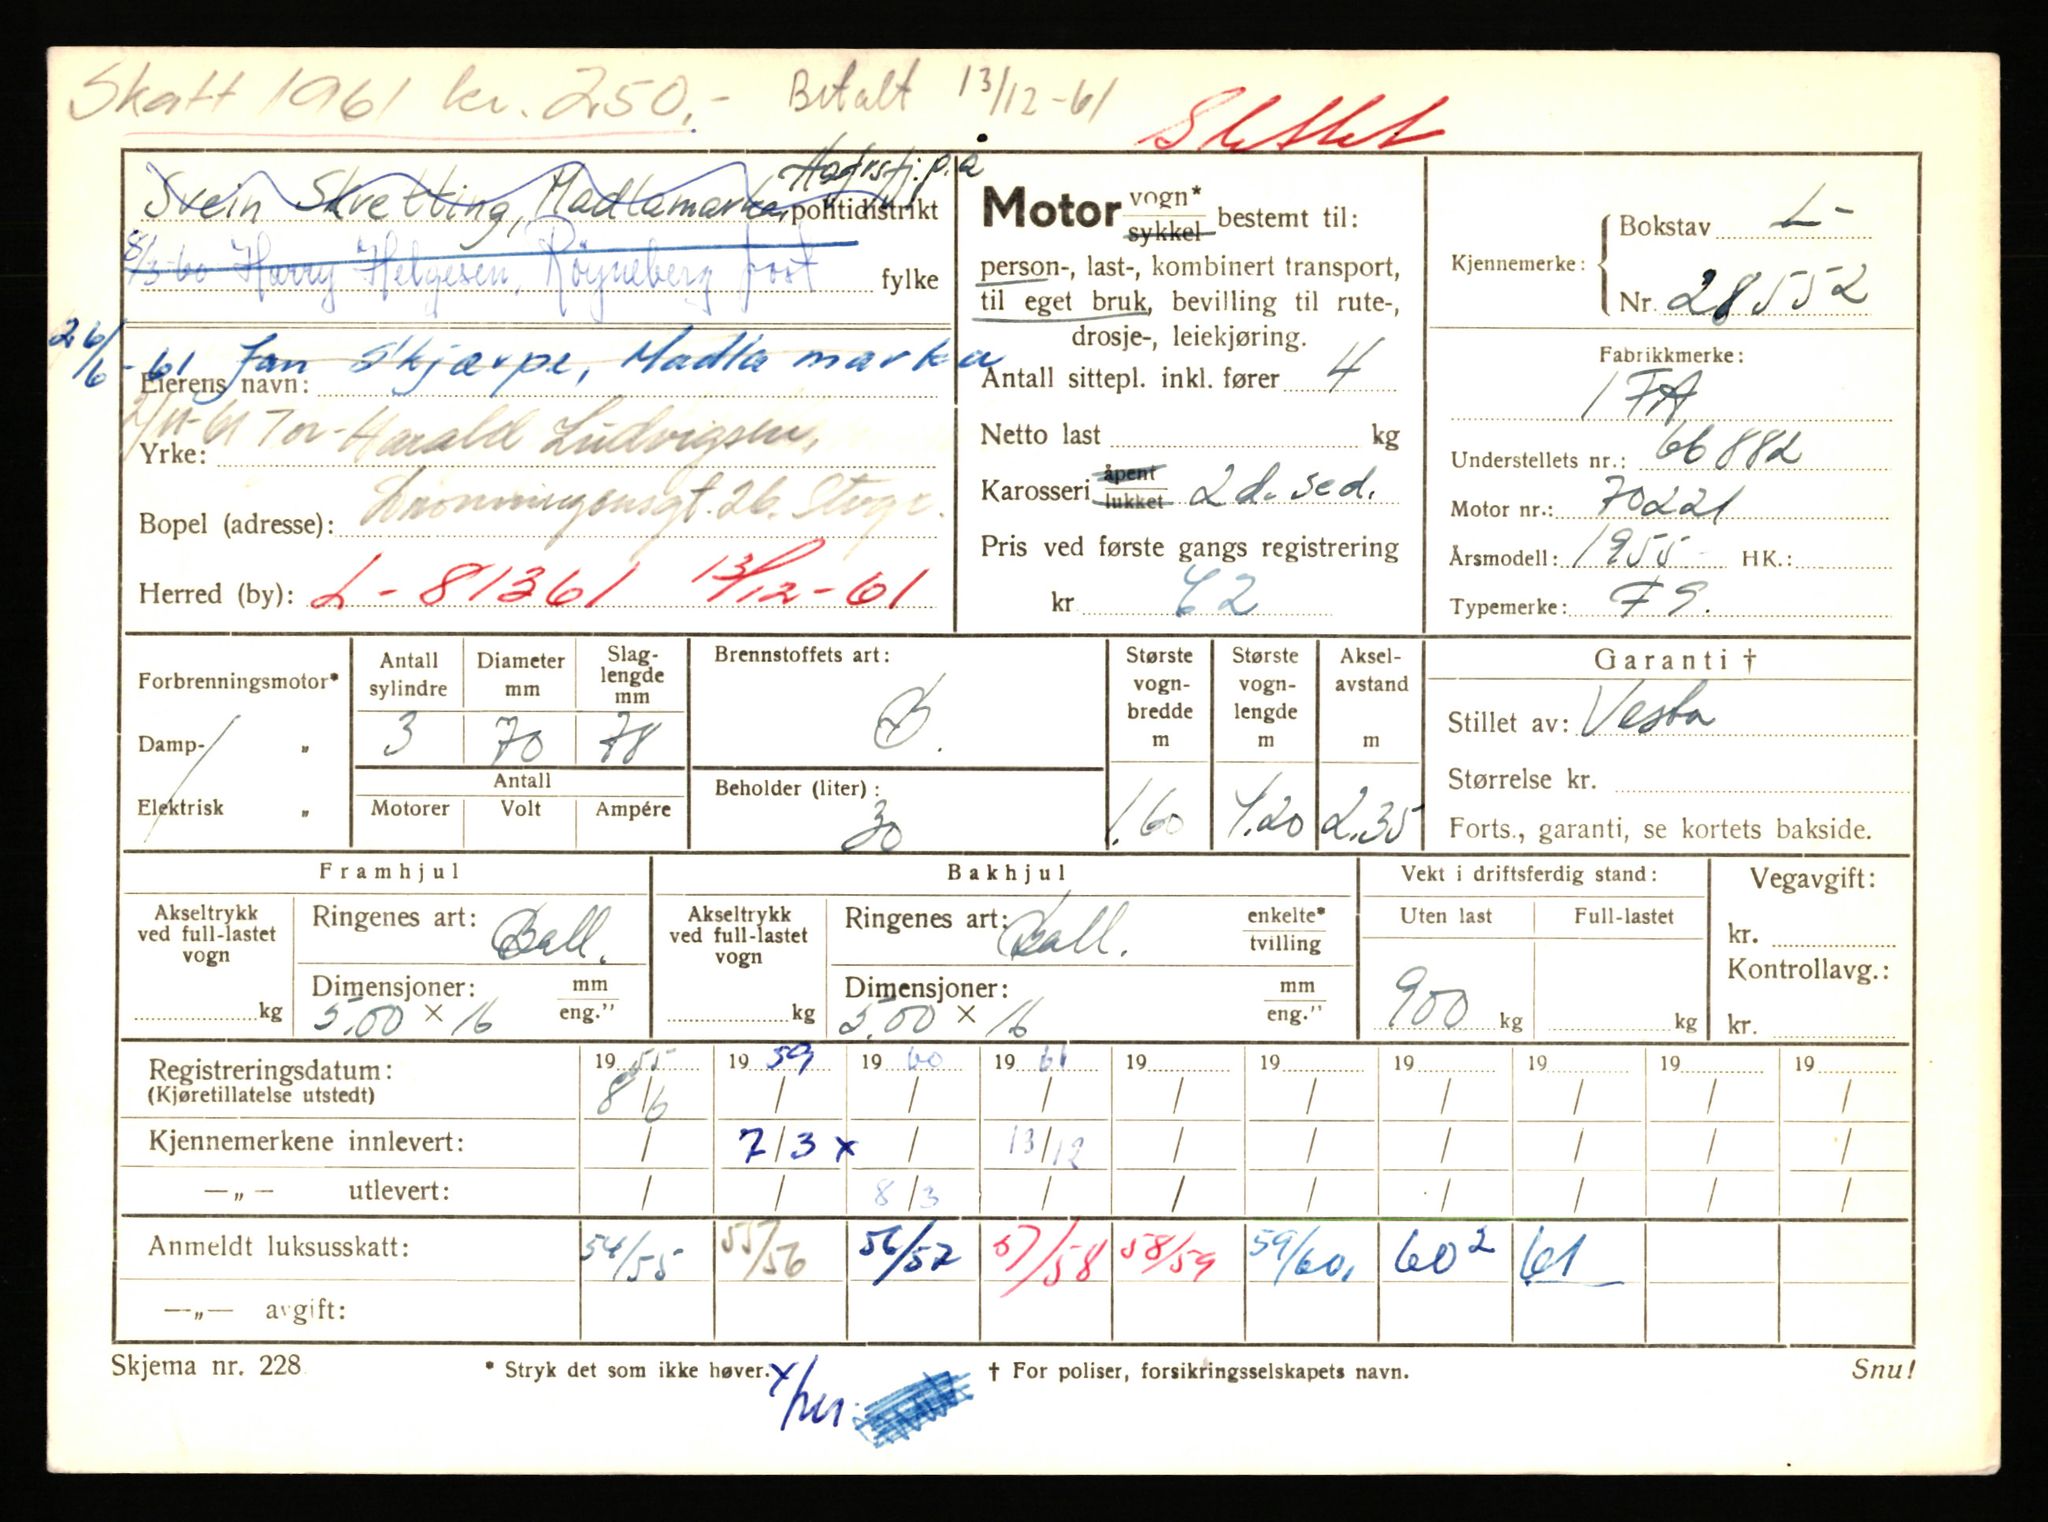 Skatt 1961 kr. 250.- Betalt 13/12-61
Slettet
Svein Skretting, Madlamarka, Hafrsfj. p.å
politidistrikt
8/3-60 Harry Helgesen, Røyneberg post
fylke
26/6-61 Jan Skjærpe, Madlamarka
Eierens navn:
Tor-Harald Ludvigsen,
Yrke:
Dronningensgt. 26. Stvgr.
Bopel (adresse):
Herred (by): L-81361 13/12-61
Motor vogn* sykkel bestemt til:
person-, last-, kombinert transport,
til eget bruk, bevilling til rute-,
drosje-, leiekjøring.
Antall sittepl. inkl. fører 4
Netto last kg
Karosseri åpent lukket 2 d. sed.
Pris ved første gangs registrering
kr 62
Kjennemerke: Bokstav L-
Nr. 28552
Fabrikkmerke:
IFA
Understellets nr.: 66882
Motor nr.: 70221
Årsmodell: 1955 HK.:
Typemerke: F9.
Forbrenningsmotor*
Damp- „
Elektrisk „
Antall sylindre Diameter mm Slaglengde mm
3 70 78
Antall
Motorer Volt Ampére
Brennstoffets art:
B.
Beholder (liter):
30
Største vognbredde m
1.60
Største vognlengde m
4.20
Akselavstand m
2.35
Garanti †
Stillet av: Vesta
Størrelse kr.
Forts., garanti, se kortets bakside.
Framhjul
Akseltrykk ved full-lastet vogn
kg
Ringenes art: Ball.
Dimensjoner: mm eng."
5.00 x 16
Bakhjul
Akseltrykk ved full-lastet vogn
kg
Ringenes art: Ball. enkelte* tvilling
Dimensjoner: mm eng."
5.00 x 16
Vekt i driftsferdig stand:
Uten last Full-lastet
900 kg kg
Vegavgift:
kr.
Kontrollavg.:
kr.
Registreringsdatum: 1955 1959 1960 1961 19 19 19 19 19 19
(Kjøretillatelse utstedt) 8/6 / / / / / / / / /
Kjennemerkene innlevert: / 7/3 x / 13/12 / / / / / /
—„— utlevert: / / 8/3 / / / / / / /
Anmeldt luksusskatt: 54/55 55/56 56/57 57/58 58/59 59/60. 60² 61
—„— avgift:
Skjema nr. 228 * Stryk det som ikke høver. † For poliser, forsikringsselskapets navn. Snu!